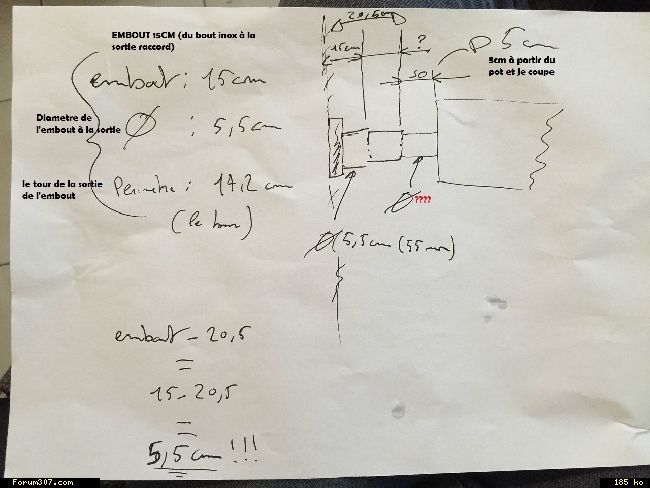 EMBOUT 15CM (du bout inox à la
sortie raccord)
embout : 15cm
Diametre de
l'embout à la sortie
Ø : 5,5cm
le tour de la sortie
de l'embout
Perimètre : 17,2 cm
(le tour)
20,5cm
15cm
?
50
5cm
5cm à partir du
pot et je coupe
Ø????
Ø 5,5cm (55 mm)
embout - 20,5
=
15 - 20,5
=
5,5cm !!!
Forum307.com
185 ko